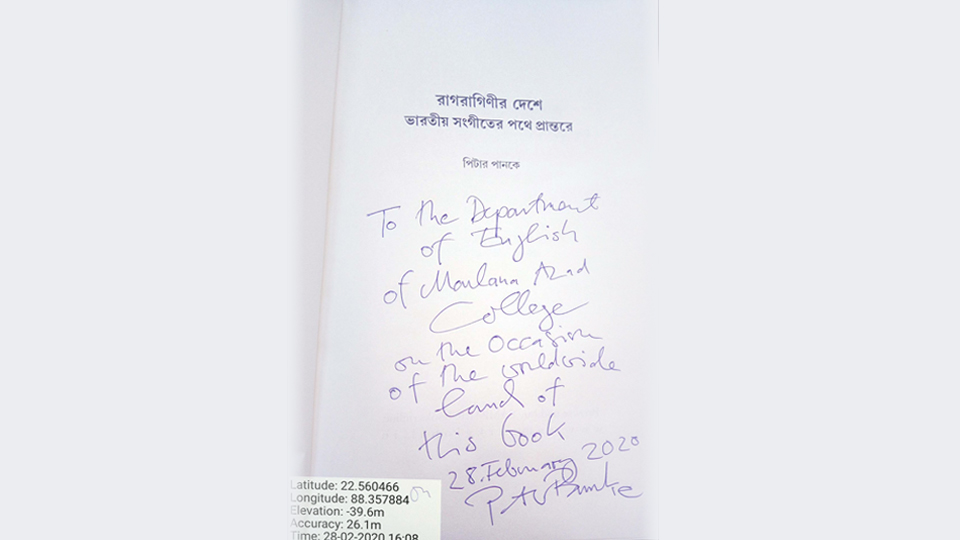 রাগরাগিণীর দেশে
ভারতীয় সংগীতের পথে প্রান্তরে
পিটার পানকে
To the Department
of English
of Maulana Azad
College
on the Occasion
of the worldwide
laund of
this book
on 28. February 2020
Latitude: 22.560466
Longitude: 88.357884
Elevation: -39.6m
Accuracy: 26.1m
Time: 28-02-2020 16:08